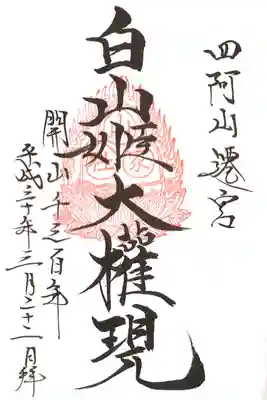 四阿山遷宮
白山姫大權現
開山千三百年
平成三十年三月二十二日拝